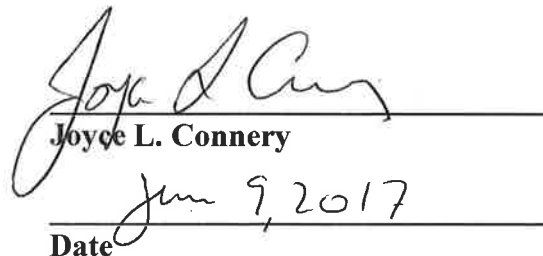 Joyce L. Connery
Joyce L. Connery
June 9, 2017
Date